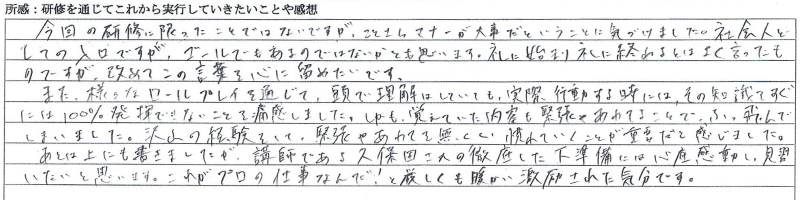 所感：研修を通じてこれから実行していきたいことや感想
今回の研修に限ったことではないですが、ことさらマナーが大事だということに気づけました。社会人と
しての入口ですが、ゴールでもあるのではないかとも思います。礼に始まり礼に終わるとはよく言ったも
のですが、改めてこの言葉を心に留めたいです。
また、様々なロールプレイを通じて、頭で理解はしていても、実際、行動する時には、その知識てすぐ
には100%発揮できないことを痛感しました。しかも、覚えていた内容も緊張やあわてることで、ふっ飛んで
しまいました。沢山の経験をして、緊張やあわてを無くし、慣れていくことが重要だと感じました。
あとは上にも書きましたが、講師である久保田さんの徹底した下準備には心底感動し、見習
いたいと思います。これがプロの仕事なんだ!と厳しくも暖かい激励された気分です。